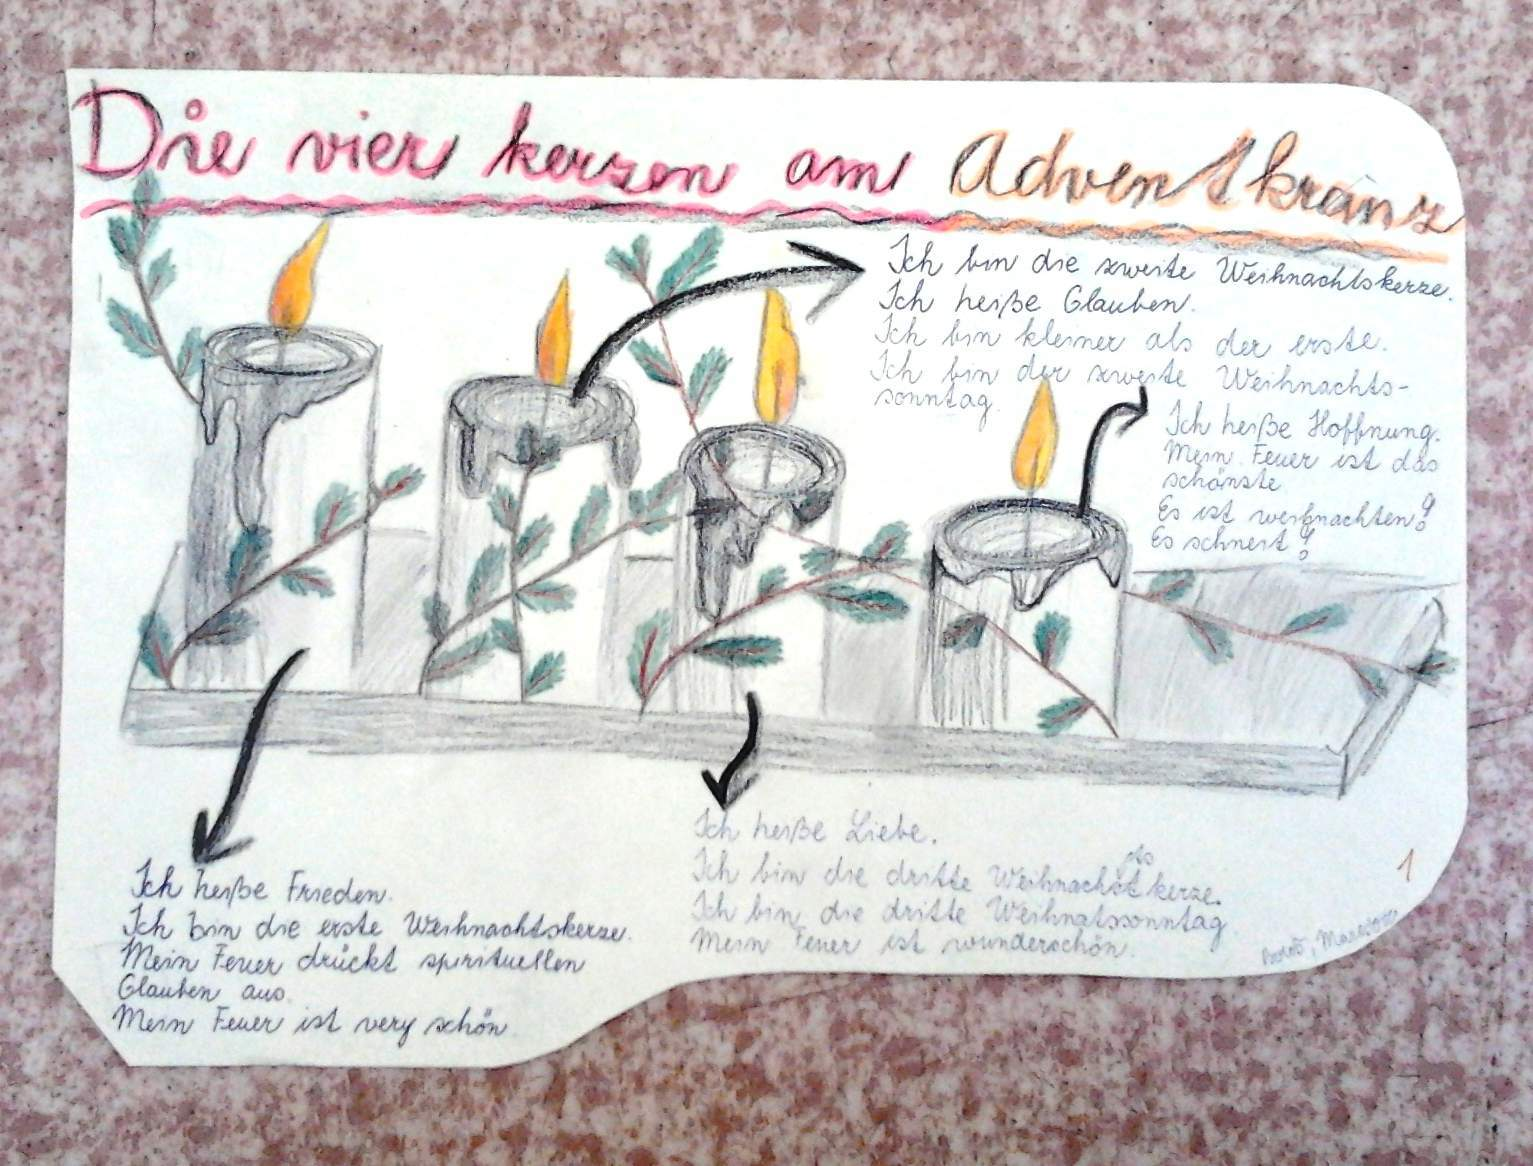 Die vier kerzen am Adventkranz
Ich bin die zweite Weihnachtskerze.
Ich heiße Glauben.
Ich bin kleiner als der erste.
Ich bin der zweite Weihnachts-
sonntag.
Ich heiße Hoffnung.
Mein Feuer ist das
schönste
Es ist weihnachten!
Es schneit!
Ich heiße Frieden.
Ich bin die erste Weihnachtskerze.
Mein Feuer drückt spirituellen
Glauben aus.
Mein Feuer ist very schön
Ich heiße Liebe.
Ich bin die dritte Weihnachtskerze.
Ich bin die dritte Weihnatssonntag.
Mein Feuer ist wunderschön.
1